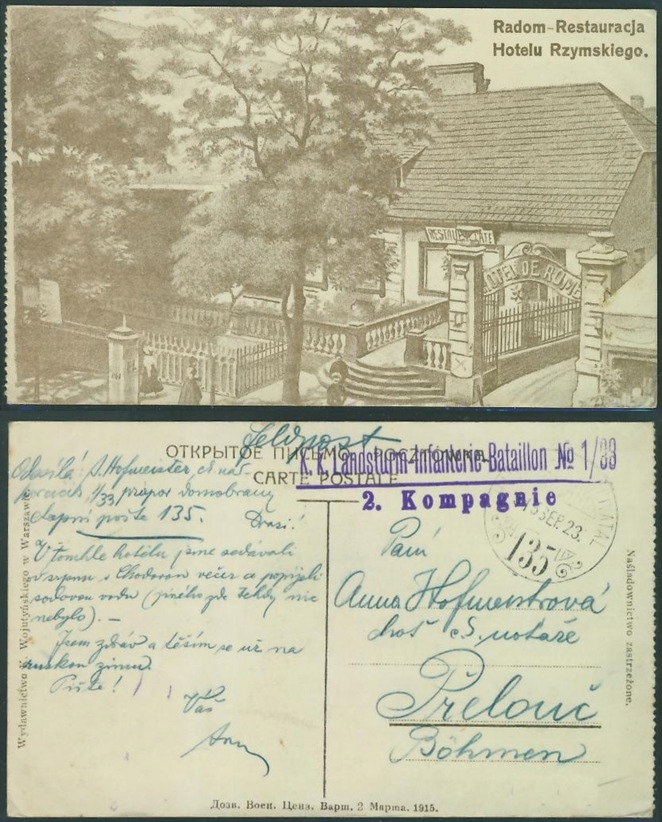 Radom-Restauracja
Hotelu Rzymskiego.
RESTAU
HOTEL DE ROME
Feldpost
ОТКРЫТОЕ ПИСЬМО. POCZTÓWKA.
CARTE POSTALE
K. k. Landsturm-Infanterie-Bataillon № 1/33
2. Kompagnie
SEP. 23.
135
Odesílá: A. Hofmeister, cs
1/33 prapor domobrany
polní pošta 135.
Drazí!
V tomhle hotelu jsme sedávali
v srpnu s Chodorou večer a popíjeli
sodovou vodu (jiného zde tehdy nic
nebylo). –
Jsem zdráv a těším se už na
ruskou zimu.
Pište!
Váš
Paní
Anna Hofmeistrová
choť cs. notáře
Přelouč
Böhmen
Wydawnictwo Wojutyńskiego w Warszawie
Naśladownictwo zastrzeżone.
Дозв. Воен. Ценз. Варш. 2 Марта. 1915.